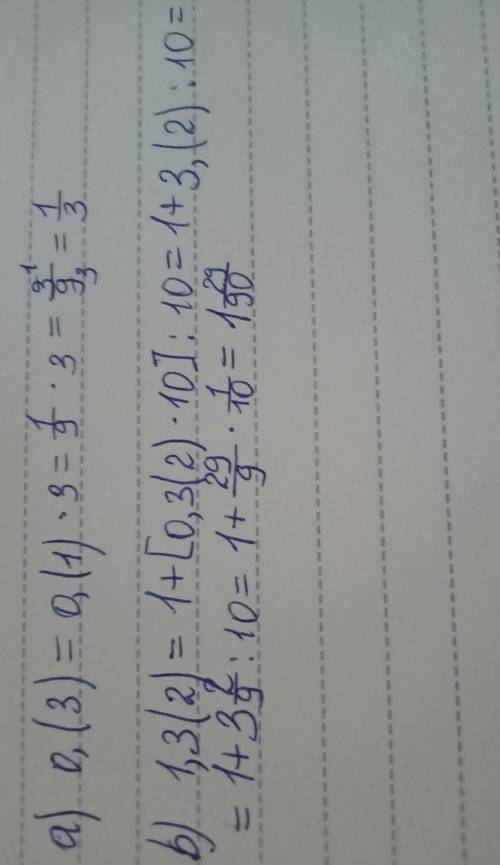 a) 0,(3) = 0,(1) · 3 = 1/9 · 3 = 3/9 = 1/3
b) 1,3(2) = 1+[0,3(2) · 10] : 10 = 1+3,(2) : 10 =
= 1+3 2/9 : 10 = 1+ 29/9 · 1/10 = 1 29/90